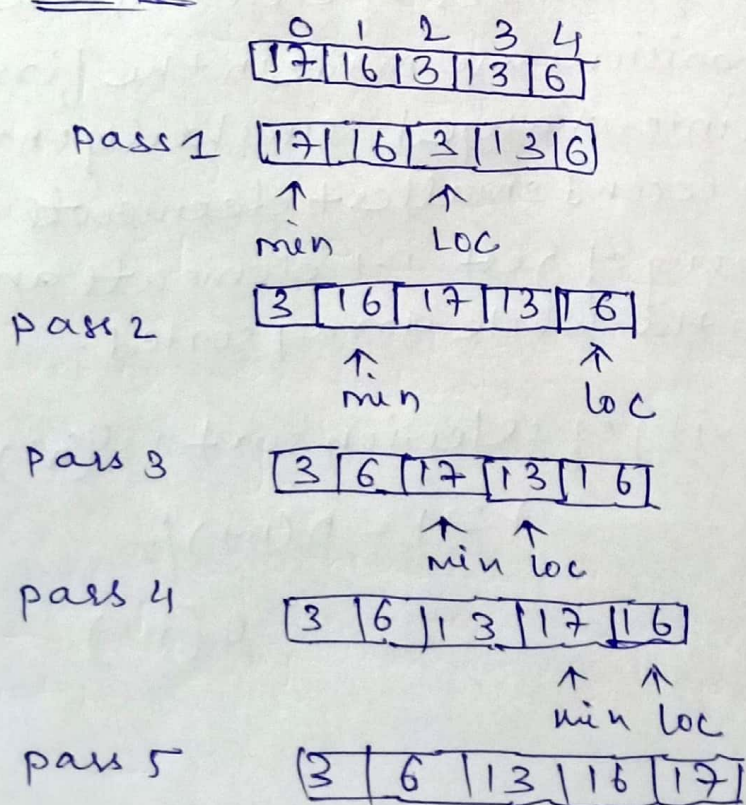 0 1 2 3 4
17 16 3 13 6
pass 1 17 16 3 13 6
min LOC
pass 2 3 16 17 13 16
min loc
pass 3 3 6 17 13 16
min loc
pass 4 3 6 13 17 16
min loc
pass 5 3 6 13 16 17